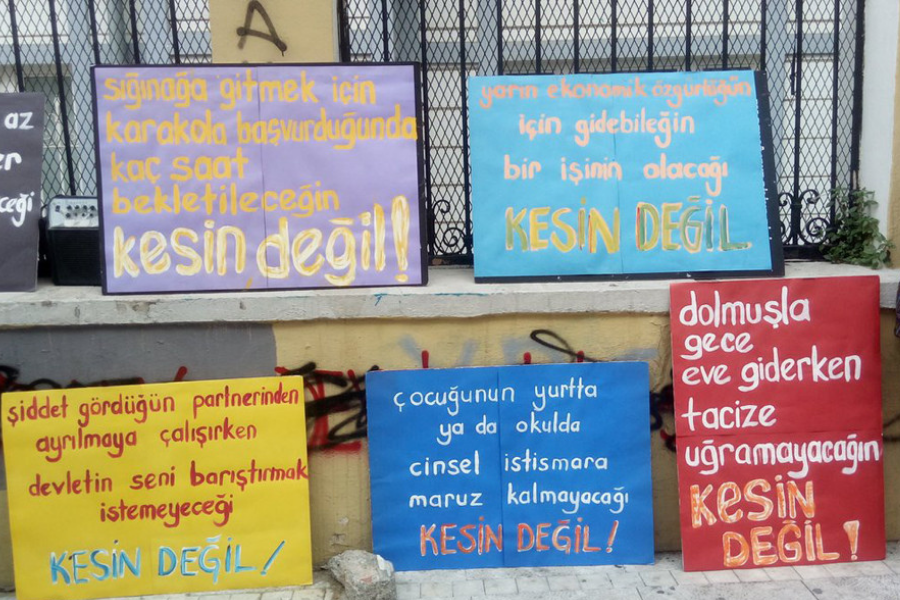 az
er
eceği
sığınağa gitmek için
karakola başvurduğunda
kaç saat
bekletileceğin
kesin değil!
yarın ekonomik özgürlüğün
için gidebileğin
bir işinin olacağı
KESİN DEĞİL
şiddet gördüğün partnerinden
ayrılmaya çalışırken
devletin seni barıştırmak
istemeyeceği
KESİN DEĞİL!
çocuğunun yurtta
ya da okulda
cinsel istismara
maruz kalmayacağı
KESİN DEĞİL!
dolmuşla
gece
eve giderken
tacize
uğramayacağın
KESİN
DEĞİL!